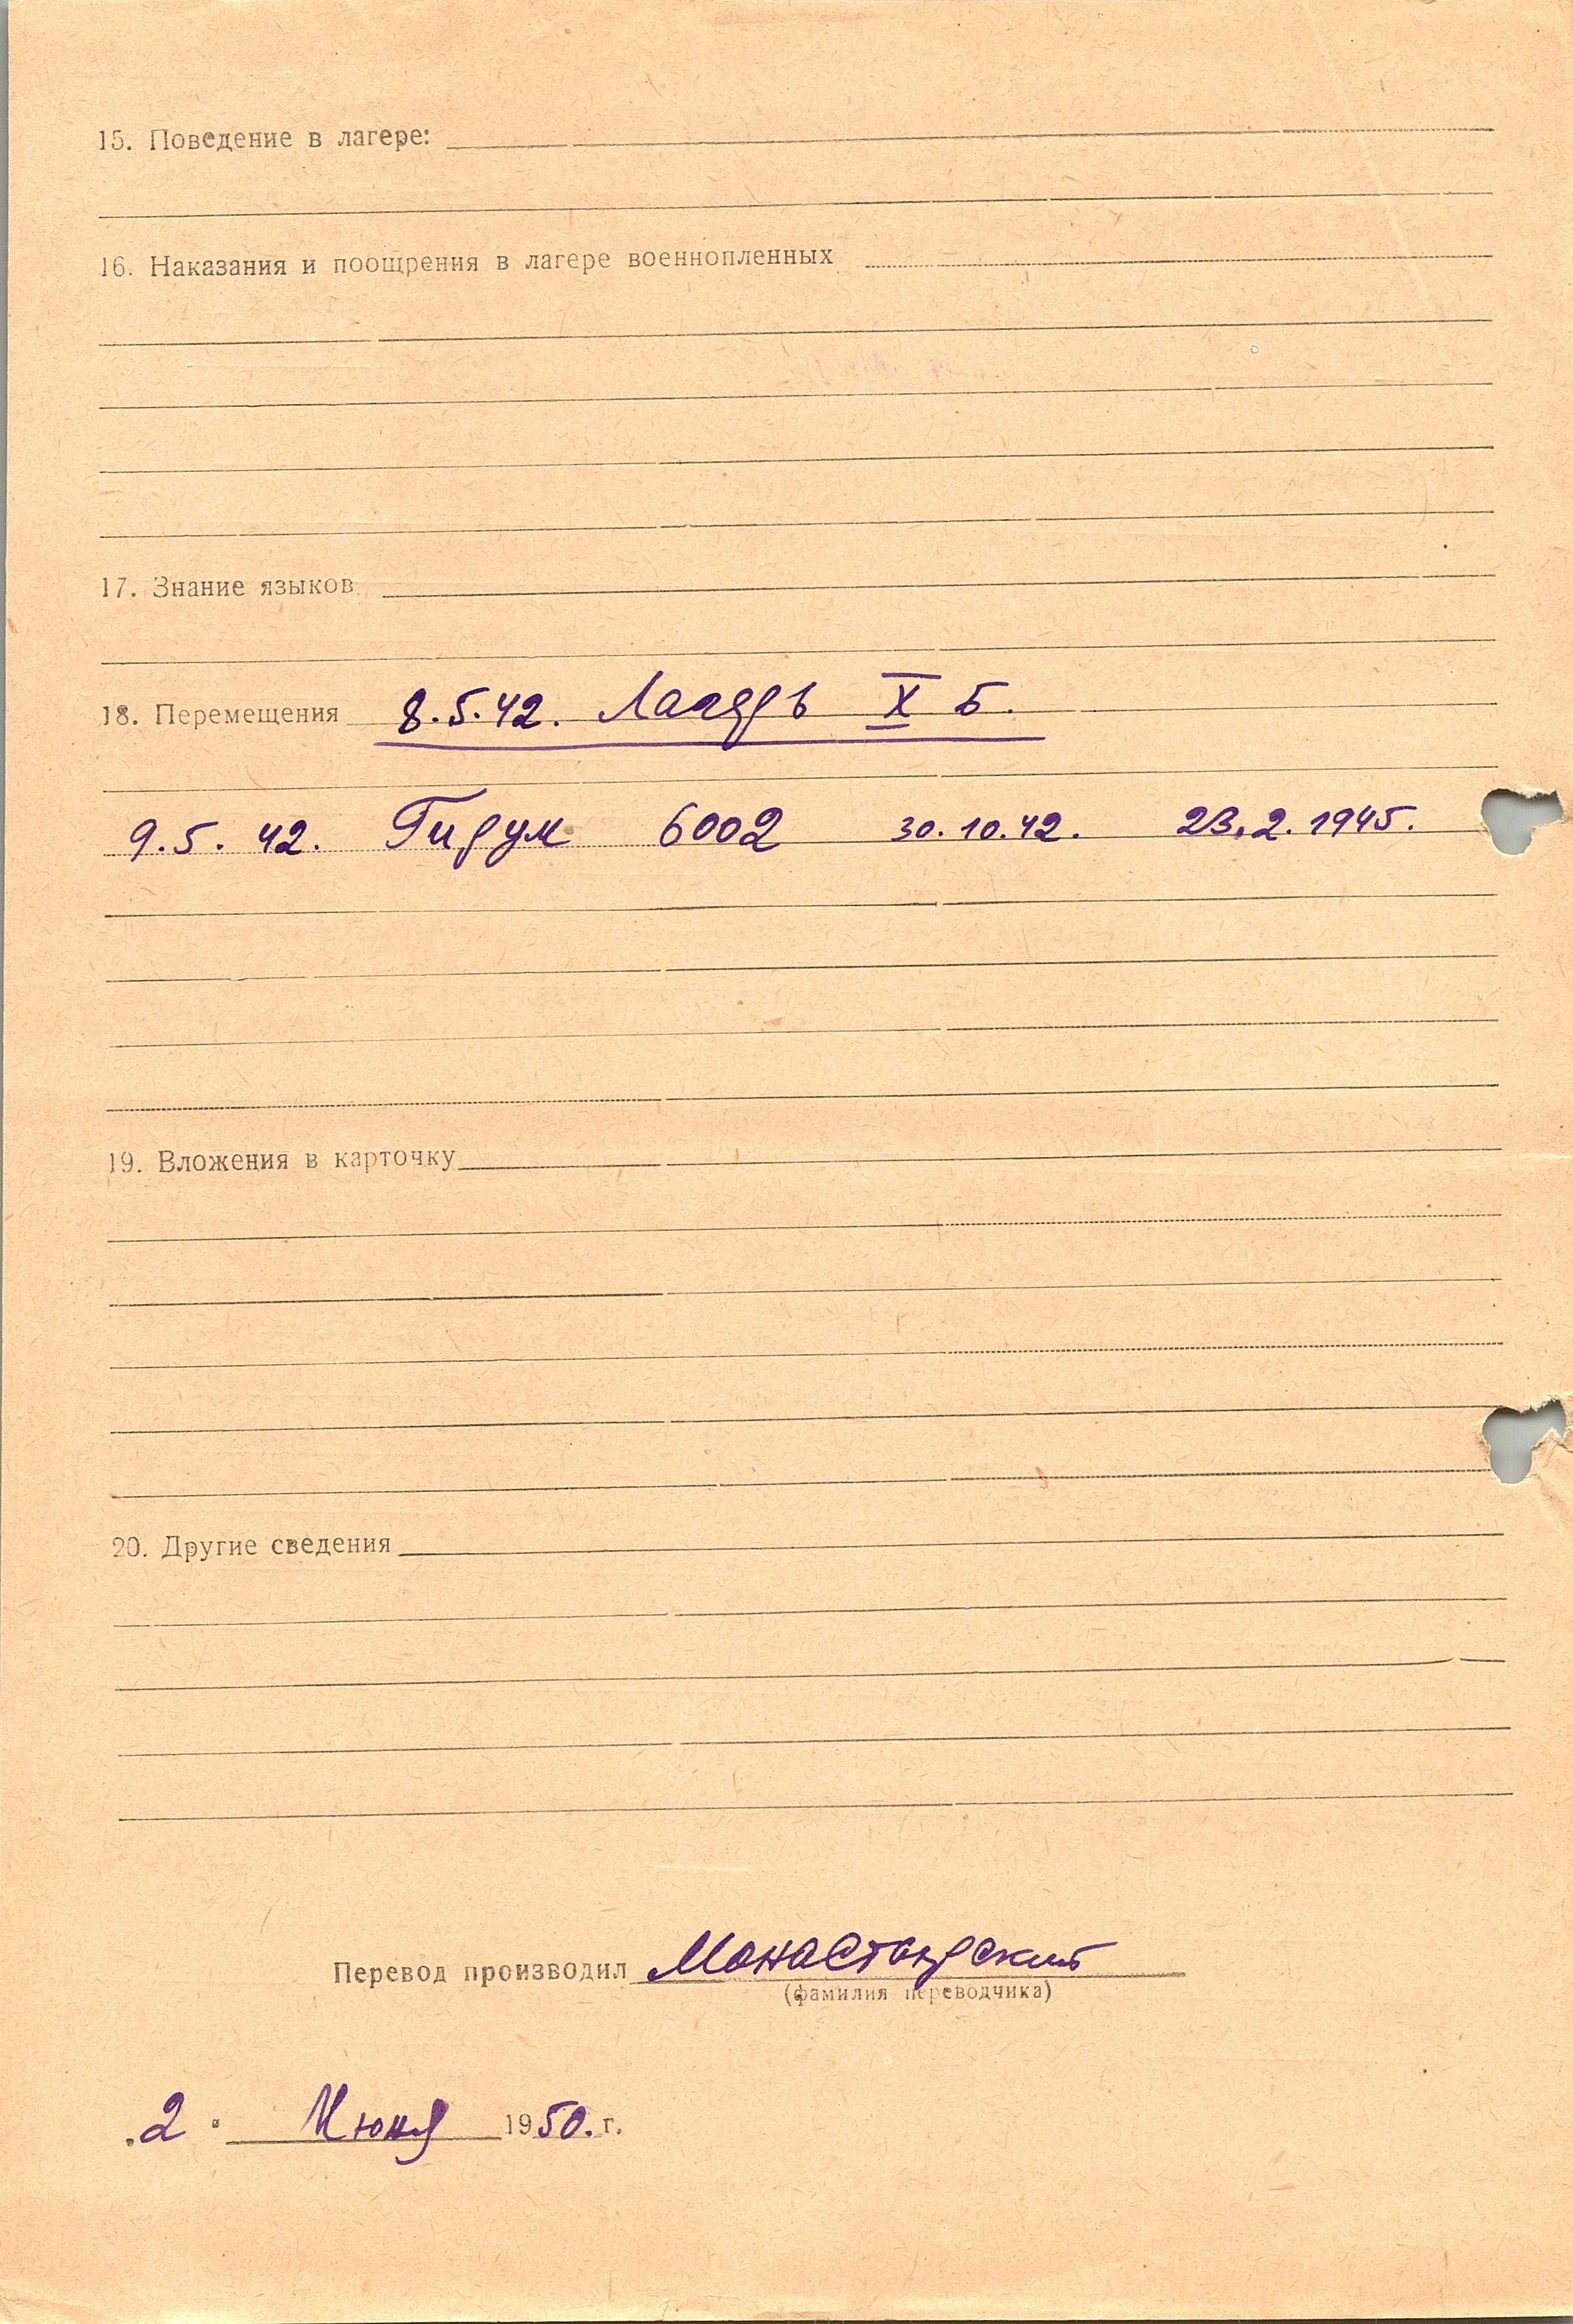 15. Поведение в лагере:
16. Наказания и поощрения в лагере военнопленных
17. Знание языков
18. Перемещения 8.5.42. Лагерь X Б.
9.5.42. Гидум 6002 30.10.42. 23.2.1945.
19. Вложения в карточку
20. Другие сведения
Перевод производил Монастырский
(фамилия переводчика)
„2" Июня 1950. г.